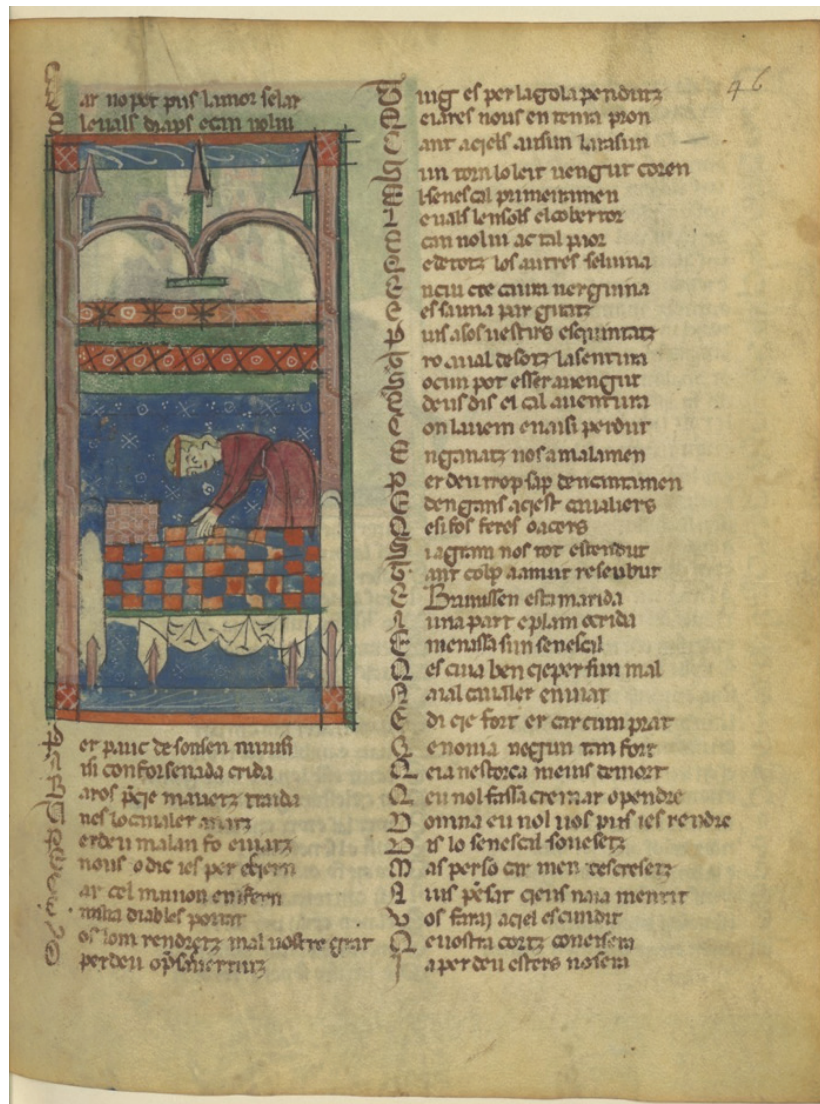 ar no pot pus lamor selar
leuals draps ecan nolui
er pauc de son sen
isi con forsenada crida
aros p̄qe mauetz traida
nes locaualer anatz
erdeu malan fo
nous odic ies per
ar cel
diables portar
os lom rendretz mal uostre grat
perdeu
46
uig es per lagola pendutz
elares nous en tenra pron
ant aqels ausun larasun
un torn lo leit uengut coren
l senescal primeiramen
e uals lensols el cobertor
can nolui ac tal paor
e detotz los autres
es sauna par
uis asos uestirs esquintatz
ro aual desotz la sentura
ocun pot esser auengut
deus dis el cal auentura
on lauem en aisi perdut
E nganatz nos a malamen
P er deu trop sap dencantamen
dengans aqest caualiers
e si fos feres o acers
iagram nos tot estendut
ant colp aauut reseubut
Brunissen esta marida
una part e plam e crida
E menassa sun senescal
Q es cuia ben qe per sun mal
A ual caualer enuiat
E di qe fort er car cumprat
Q e non a negun tan fort
Q eia nestorca meins demort
Q eu nol fassa cremar o pendre
D omna eu nol uos pus ies rendre
D is lo senescal so uesetz
M as perso car men descresetz
A uis p̄sar qeus naia mentit
V os farai aqel escundit
Q e uostra cortz coneisera
I a per deu esters no sera